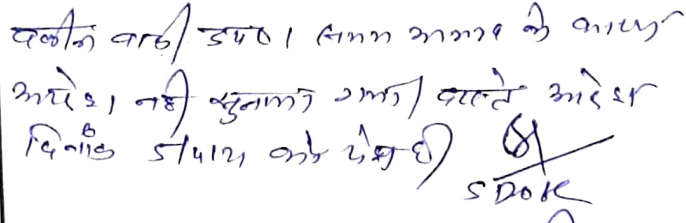 वकील वादी उप०। समय अभाव के कारण
आदेश नहीं सुनाया गया। वास्ते आदेश
दिनांक 5/4/21 को पेश हो।
SDOK